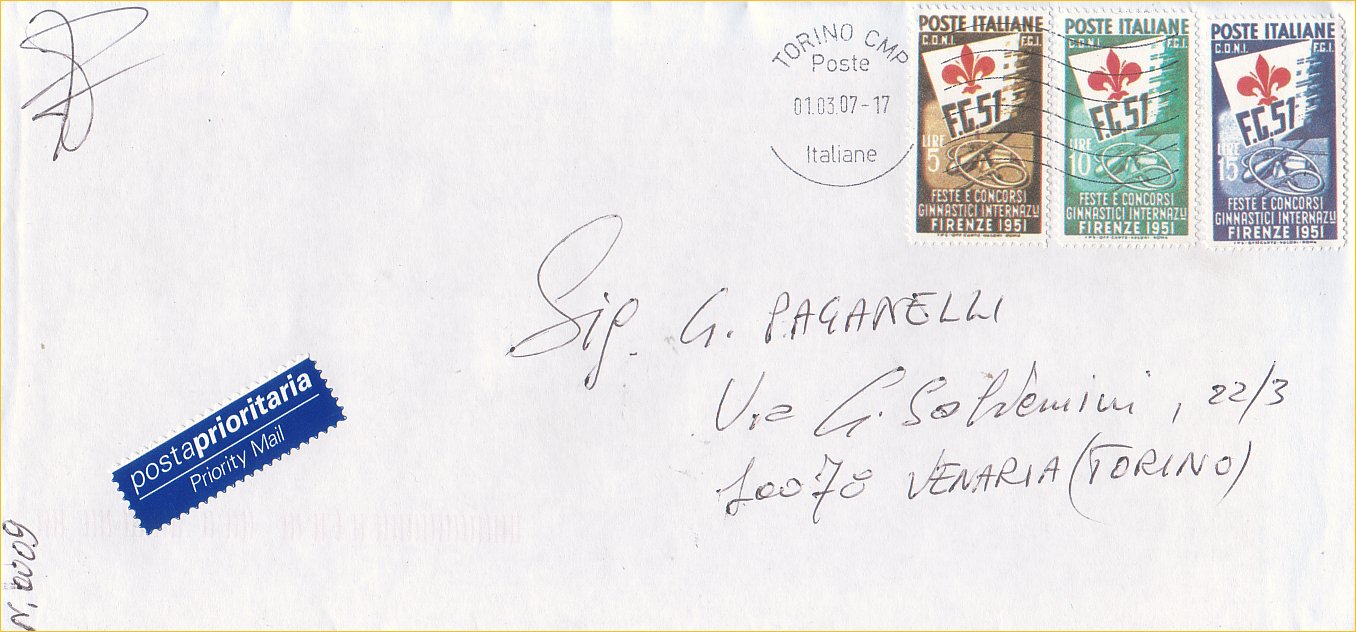 TORINO CMP
Poste
01.03.07-17
Italiane
POSTE ITALIANE
C.O.N.I. F.G.I.
F.G.51
LIRE
5
FESTE E CONCORSI
GINNASTICI INTERNAZLI
FIRENZE 1951
I.P.S.-OFF.CARTE-VALORI-ROMA
POSTE ITALIANE
C.O.N.I. F.G.I.
F.G.51
LIRE
10
FESTE E CONCORSI
GINNASTICI INTERNAZLI
FIRENZE 1951
I.P.S.-OFF.CARTE-VALORI-ROMA
POSTE ITALIANE
C.O.N.I. F.G.I.
F.G.51
LIRE
15
FESTE E CONCORSI
GINNASTICI INTERNAZLI
FIRENZE 1951
I.P.S.-OFF.CARTE-VALORI-ROMA
Sig. G. PAGANELLI
Via G. Salvemini, 22/3
10078 VENARIA (TORINO)
postaprioritaria
Priority Mail
N. 6009